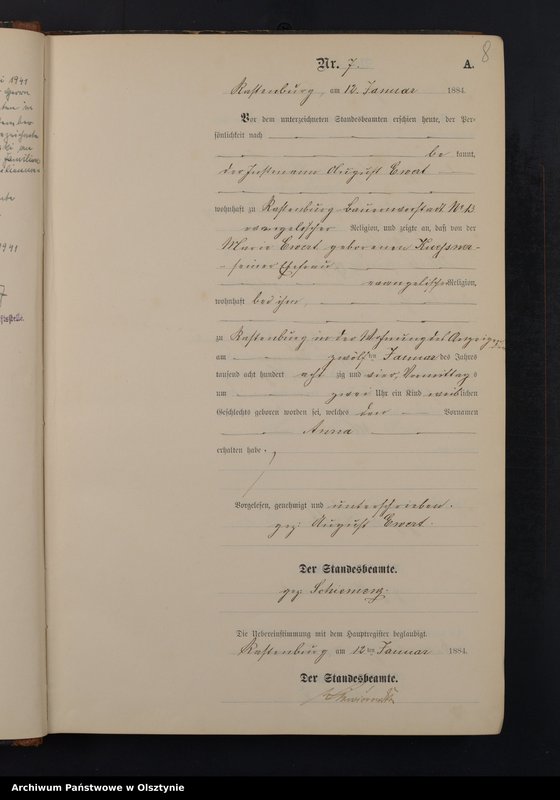 i 1941
Herrn
ten in
ember
ezeichnete
ski an
Familien
ilianowo
1941
8
Nr. 7.
A.
Rastenburg, am 12. Januar 1884.
Vor dem unterzeichneten Standesbeamten erschien heute, der Per-
sönlichkeit nach
be kannt,
der Instmann August Ewert
wohnhaft zu Rastenburg Bauervorstadt No 13
evangelischer Religion, und zeigte an, daß von der
Marie Ewert geborenen
seiner Ehefrau
evangelischer Religion,
wohnhaft bei ihm,
zu Rastenburg in der Wohnung des Anzeigers
am zwölften Januar des Jahres
tausend acht hundert acht zig und vier, Vormittags
um zwei Uhr ein Kind weiblichen
Geschlechts geboren worden sei, welches den Vornamen
Anna
erhalten habe.
Vorgelesen, genehmigt und unterschrieben.
gez: August Ewert.
Der Standesbeamte.
gez:
Die Uebereinstimmung mit dem Hauptregister beglaubigt.
Rastenburg am 12ten Januar 1884.
Der Standesbeamte.
Archiwum Państwowe w Olsztynie